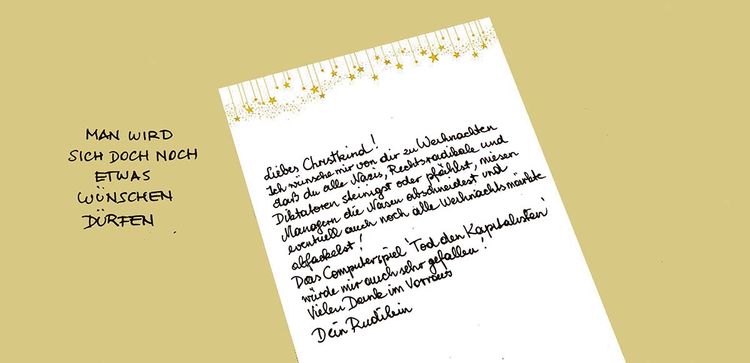 MAN WIRD
SICH DOCH NOCH
ETWAS
WÜNSCHEN
DÜRFEN
Liebes Christkind!
Ich wünsche mir von dir zu Weihnachten
daß du alle Nazis, Rechtsradikale und
Diktatoren steinigst oder pfählst, miesen
Managern die Nasen abschneidest und
eventuell auch noch alle Weihnachtsmärkte
abfackelst!
Das Computerspiel 'Tod den Kapitalisten'
würde mir auch sehr gefallen!
Vielen Dank im Vorraus
Dein Rudilein